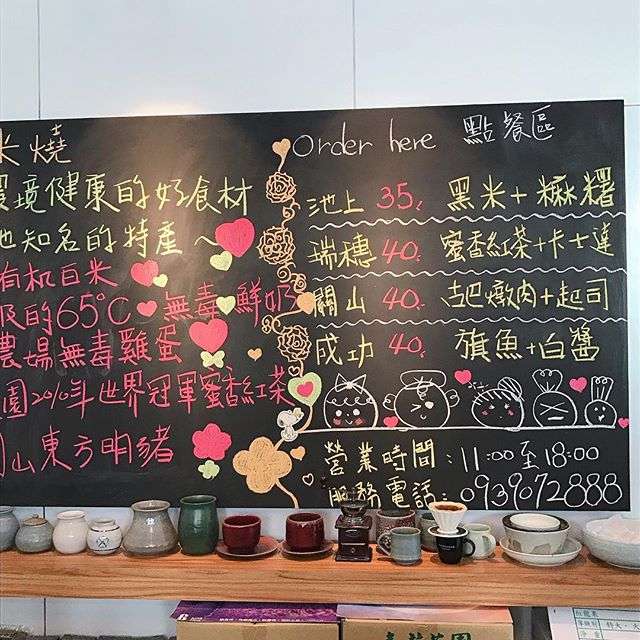 米燒
環境健康的好食材
地知名的特產~
有机白米
的65°C 無毒 鮮奶
農場無毒雞蛋
園2010年世界冠軍蜜香紅茶
山東方明豬
order here 點餐區
池上 35. 黑米+麻糬
瑞穗 40. 蜜香紅茶+卡士達
關山 40. 古早燉肉+起司
成功 40. 旗魚+白醬
營業時間:11:00至18:00
服務電話:0939072888